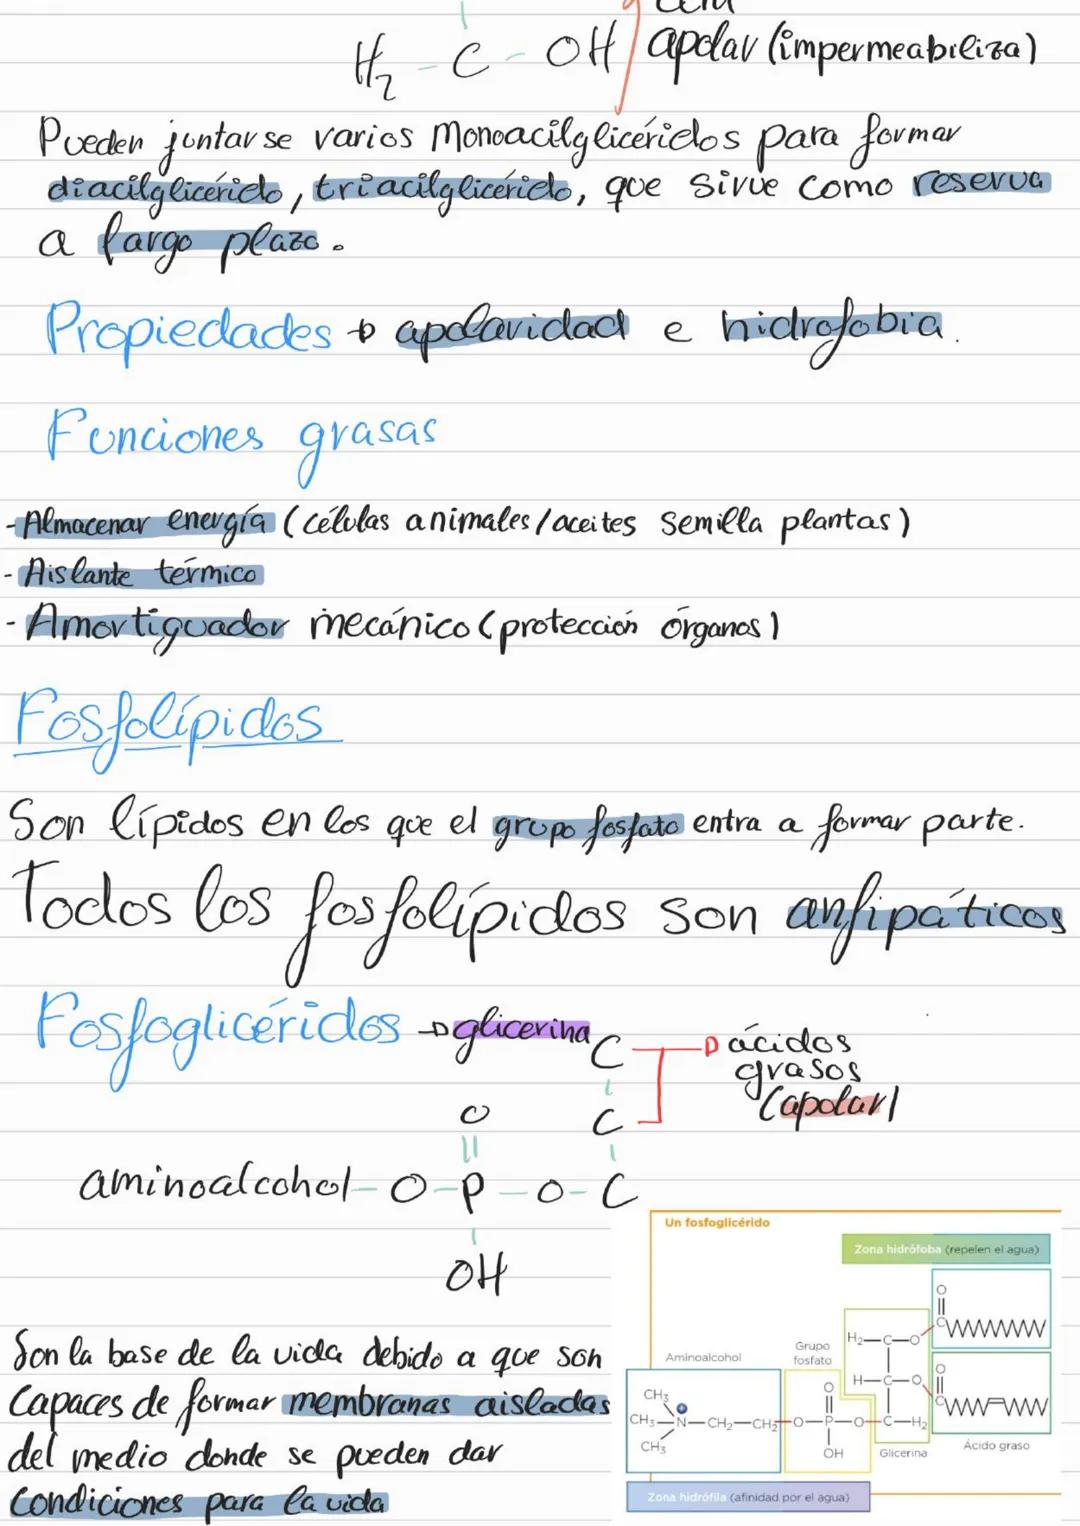 H₂ - C - OH apolar (impermeabiliza)
Pueden juntarse varios Monoacilglicéridos para formar
diacilglicérido, triacilglicérido, que sirve como reserva
a largo plazo.
Propiedades → apolaridad e hidrofobia.
Funciones grasas
- Almacenar energía (células animales/aceites semilla plantas)
- Aislante térmico
- Amortiguador mecánico (protección órganos)
Fosfolípidos
Son lípidos en los que el grupo fosfato entra a formar parte.
Todos los fosfolípidos son anfipáticos
Fosfoglicéridos → glicerina
C → ácidos
grasos
(apolar)
O C
aminoalcohol - O - P - O - C
OH
Son la base de la vida debido a que son
capaces de formar membranas aisladas
del medio donde se pueden dar
condiciones para la vida
Un fosfoglicérido
Zona hidrófoba (repelen el agua)
Aminoalcohol
Grupo
fosfato
O
C
H₂—C—O
O
H—C—O
C
CH₃
CH₃—N—CH₂—CH₂—O—P—O—C—H₂
CH₃
O
OH
Glicerina
Ácido graso
Zona hidrófila (afinidad por el agua)